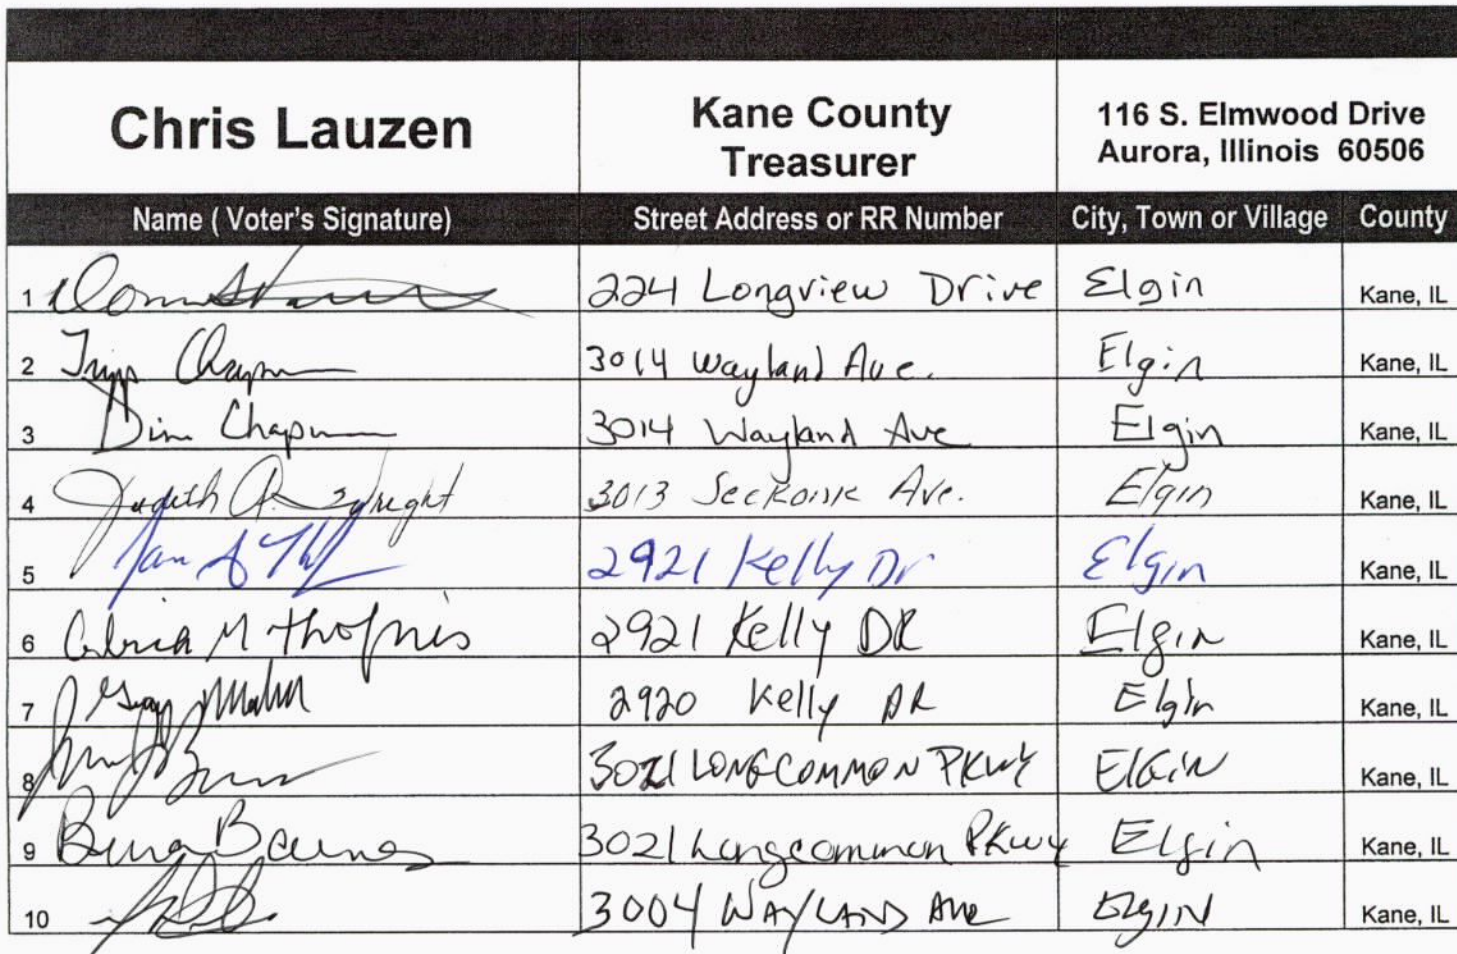 Chris Lauzen
Kane County
Treasurer
116 S. Elmwood Drive
Aurora, Illinois 60506
Name ( Voter's Signature) Street Address or RR Number City, Town or Village County
1 224 Longview Drive Elgin Kane, IL
2 Chapm 3014 Wayland Ave. Elgin Kane, IL
3 Chapm 3014 Wayland Ave Elgin Kane, IL
4 Judith A. 3013 Seekonk Ave. Elgin Kane, IL
5 2921 Kelly Dr Elgin Kane, IL
6 M 2921 Kelly DR Elgin Kane, IL
7 2920 Kelly DR Elgin Kane, IL
8 3021 LONGCOMMON PKWY ElGiN Kane, IL
9 Barnes 3021 Longcommon PKwy Elgin Kane, IL
10 3004 WAYLAND AVE ElgIN Kane, IL